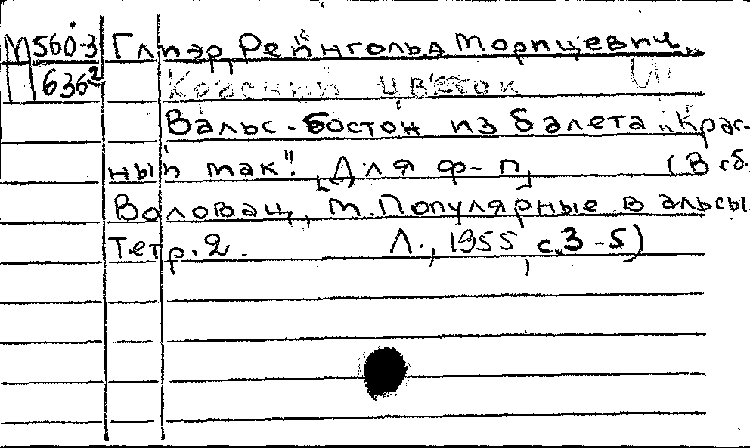 М560-3 Глиэр, Рейнгольд Морицевич.
636² Красный цветок
Вальс-бостон из балета „Крас-
ный мак". [Для ф-п] (В сб.
Воловац, М. Популярные вальсы
Тетр. 2. Л., 1955, с. 3-5)